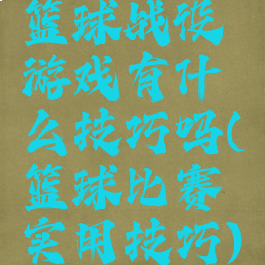 篮球战役
游戏有什
么技巧吗(
篮球比赛
实用技巧)